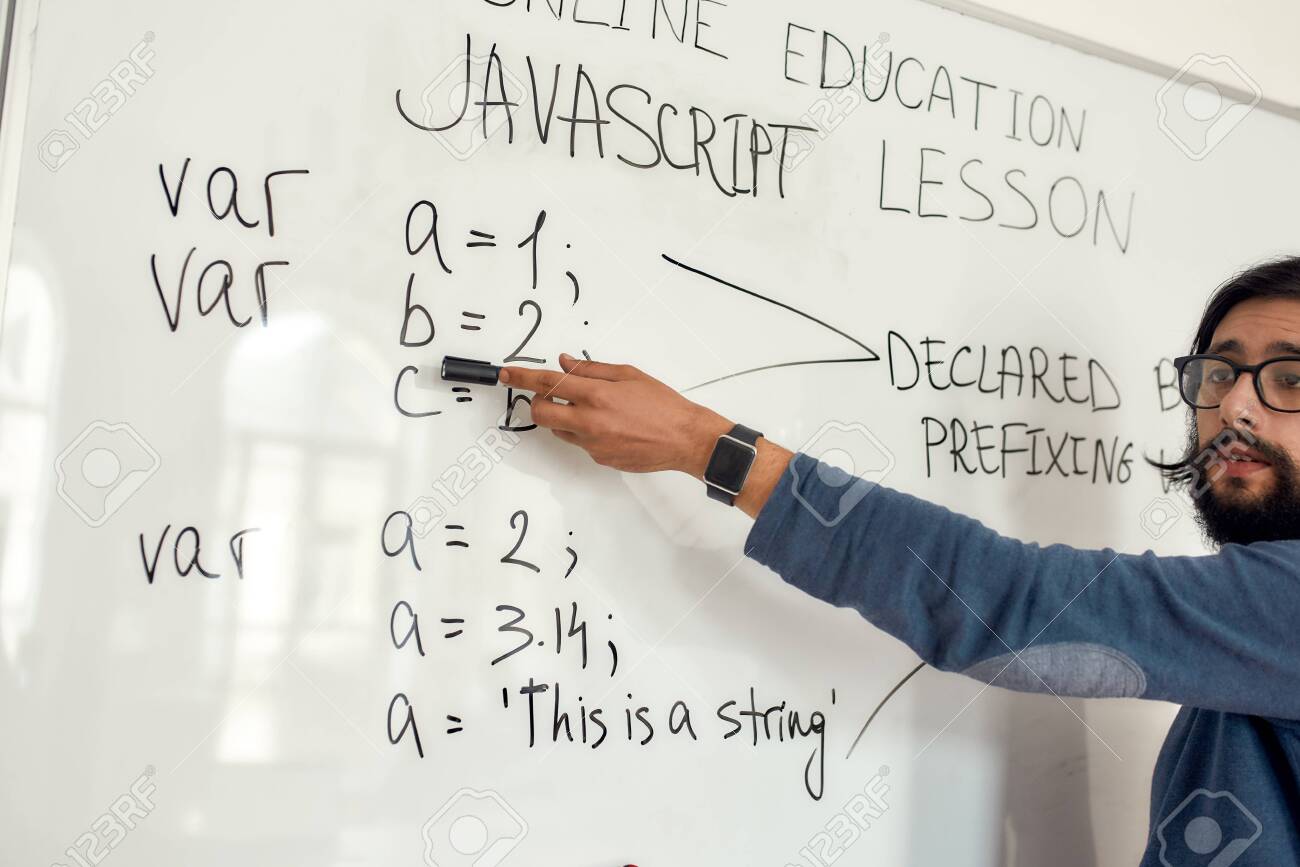 ONLINE EDUCATION
JAVASCRIPT LESSON
var a = 1;
var b = 2;
c = b
DECLARED
PREFIXING
var a = 2;
a = 3.14;
a = 'This is a string'
123RF